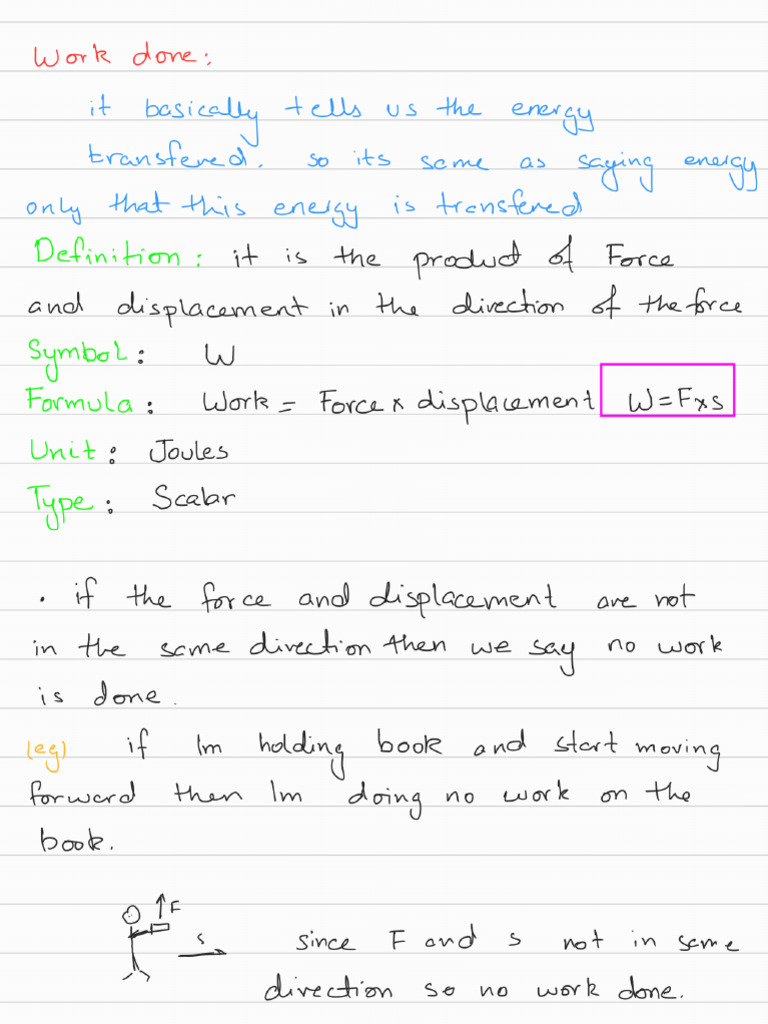 Work done:
it basically tells us the energy
transfered. so its same as saying energy
only that this energy is transfered
Definition: it is the product of Force
and displacement in the direction of the force
Symbol: W
Formula: Work = Force x displacement W=F×s
Unit: Joules
Type: Scalar
• if the force and displacement are not
in the same direction then we say no work
is done.
(eg) if Im holding book and start moving
forward then Im doing no work on the
book.
F
s
since F and s not in same
direction so no work done.